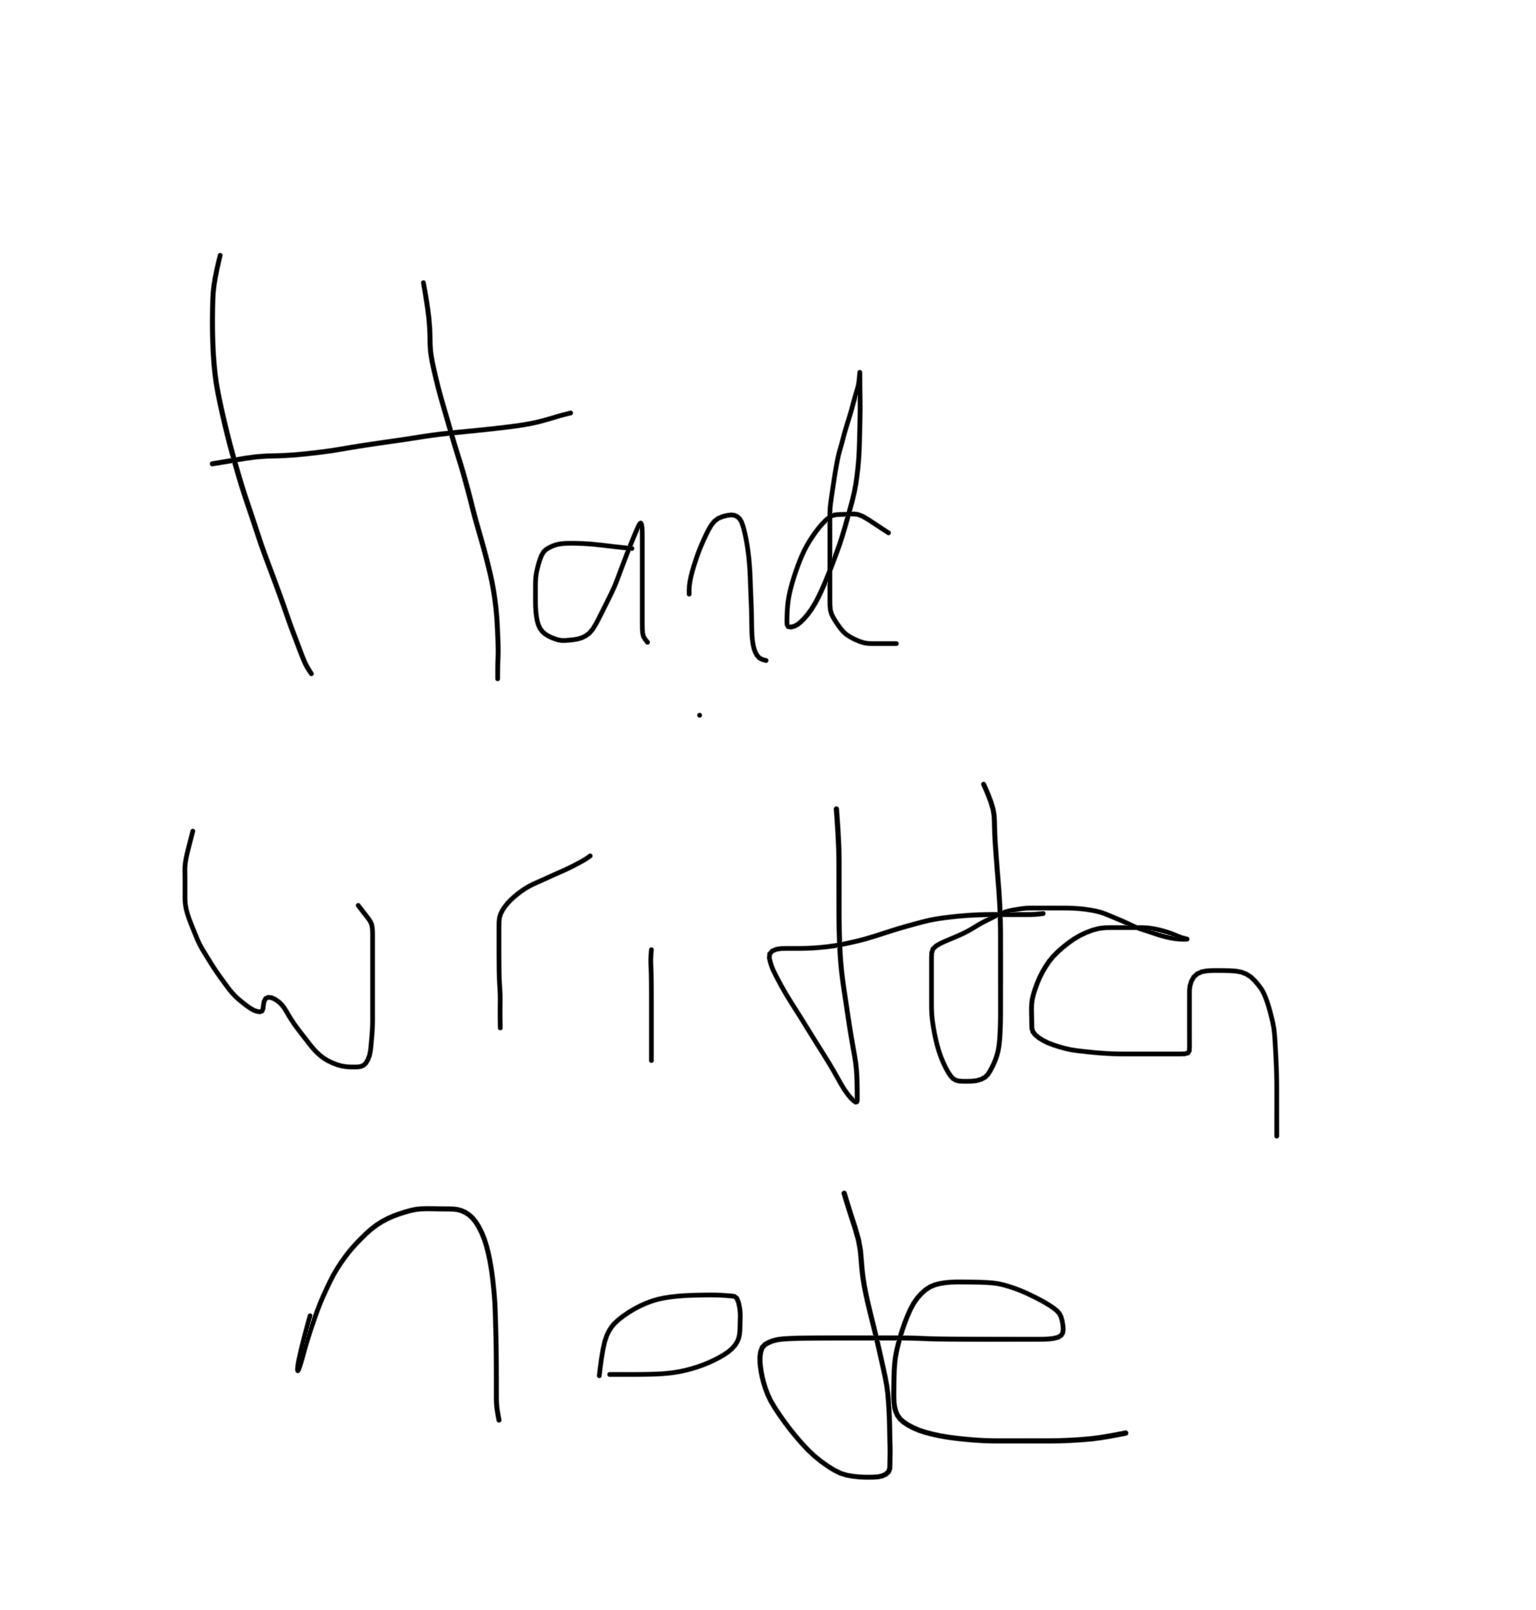 Hand
written
note